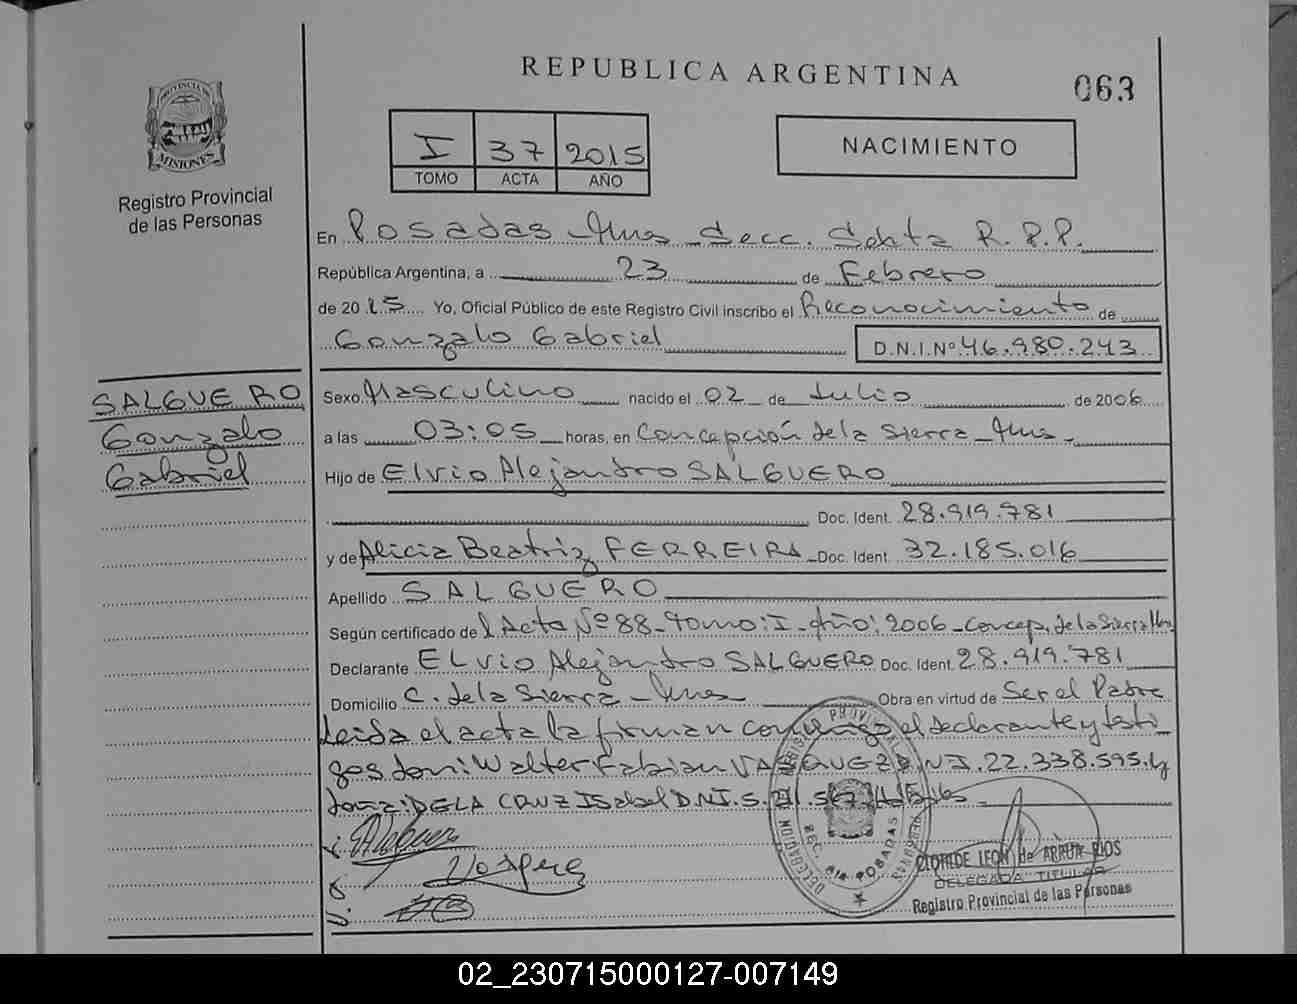 REPUBLICA ARGENTINA
063
PROVINCIA DE
MISIONES
Registro Provincial
de las Personas
I 37 2015
TOMO ACTA AÑO
NACIMIENTO
En Posadas - Mnes - Secc. Sexta R.P.P.
República Argentina, a 23 de Febrero
de 2015 Yo, Oficial Público de este Registro Civil inscribo el Reconocimiento de
Gonzalo Gabriel D.N.I.Nº 46.980.243
SALGUERO
Gonzalo
Gabriel
Sexo Masculino nacido el 02 de Julio de 2006
a las 03:05 horas, en Concepción de la Sierra - Mnes -
Hijo de Elvio Alejandro SALGUERO
Doc. Ident. 28.919.781
y de Alicia Beatriz FERREIRA - Doc. Ident. 32.185.016
Apellido SALGUERO
Según certificado del Acta Nº 88 - Tomo: I - Año: 2006 - Concep. de la Sierra Mnes
Declarante ELvio Alejandro SALGUERO Doc. Ident. 28.919.781
Domicilio C. de la Sierra - Mnes Obra en virtud de Ser el Padre
Leida el acta la firman conmigo el declarante y testi-
gos don: Walter Fabian VASQUEZ D.N.I. 22.338.595. y
doña: DE LA CRUZ ISabel D.N.I.
CLOTILDE LEON de ARRUA RIOS
DELEGADA TITULAR
Registro Provincial de las Personas
02_230715000127-007149